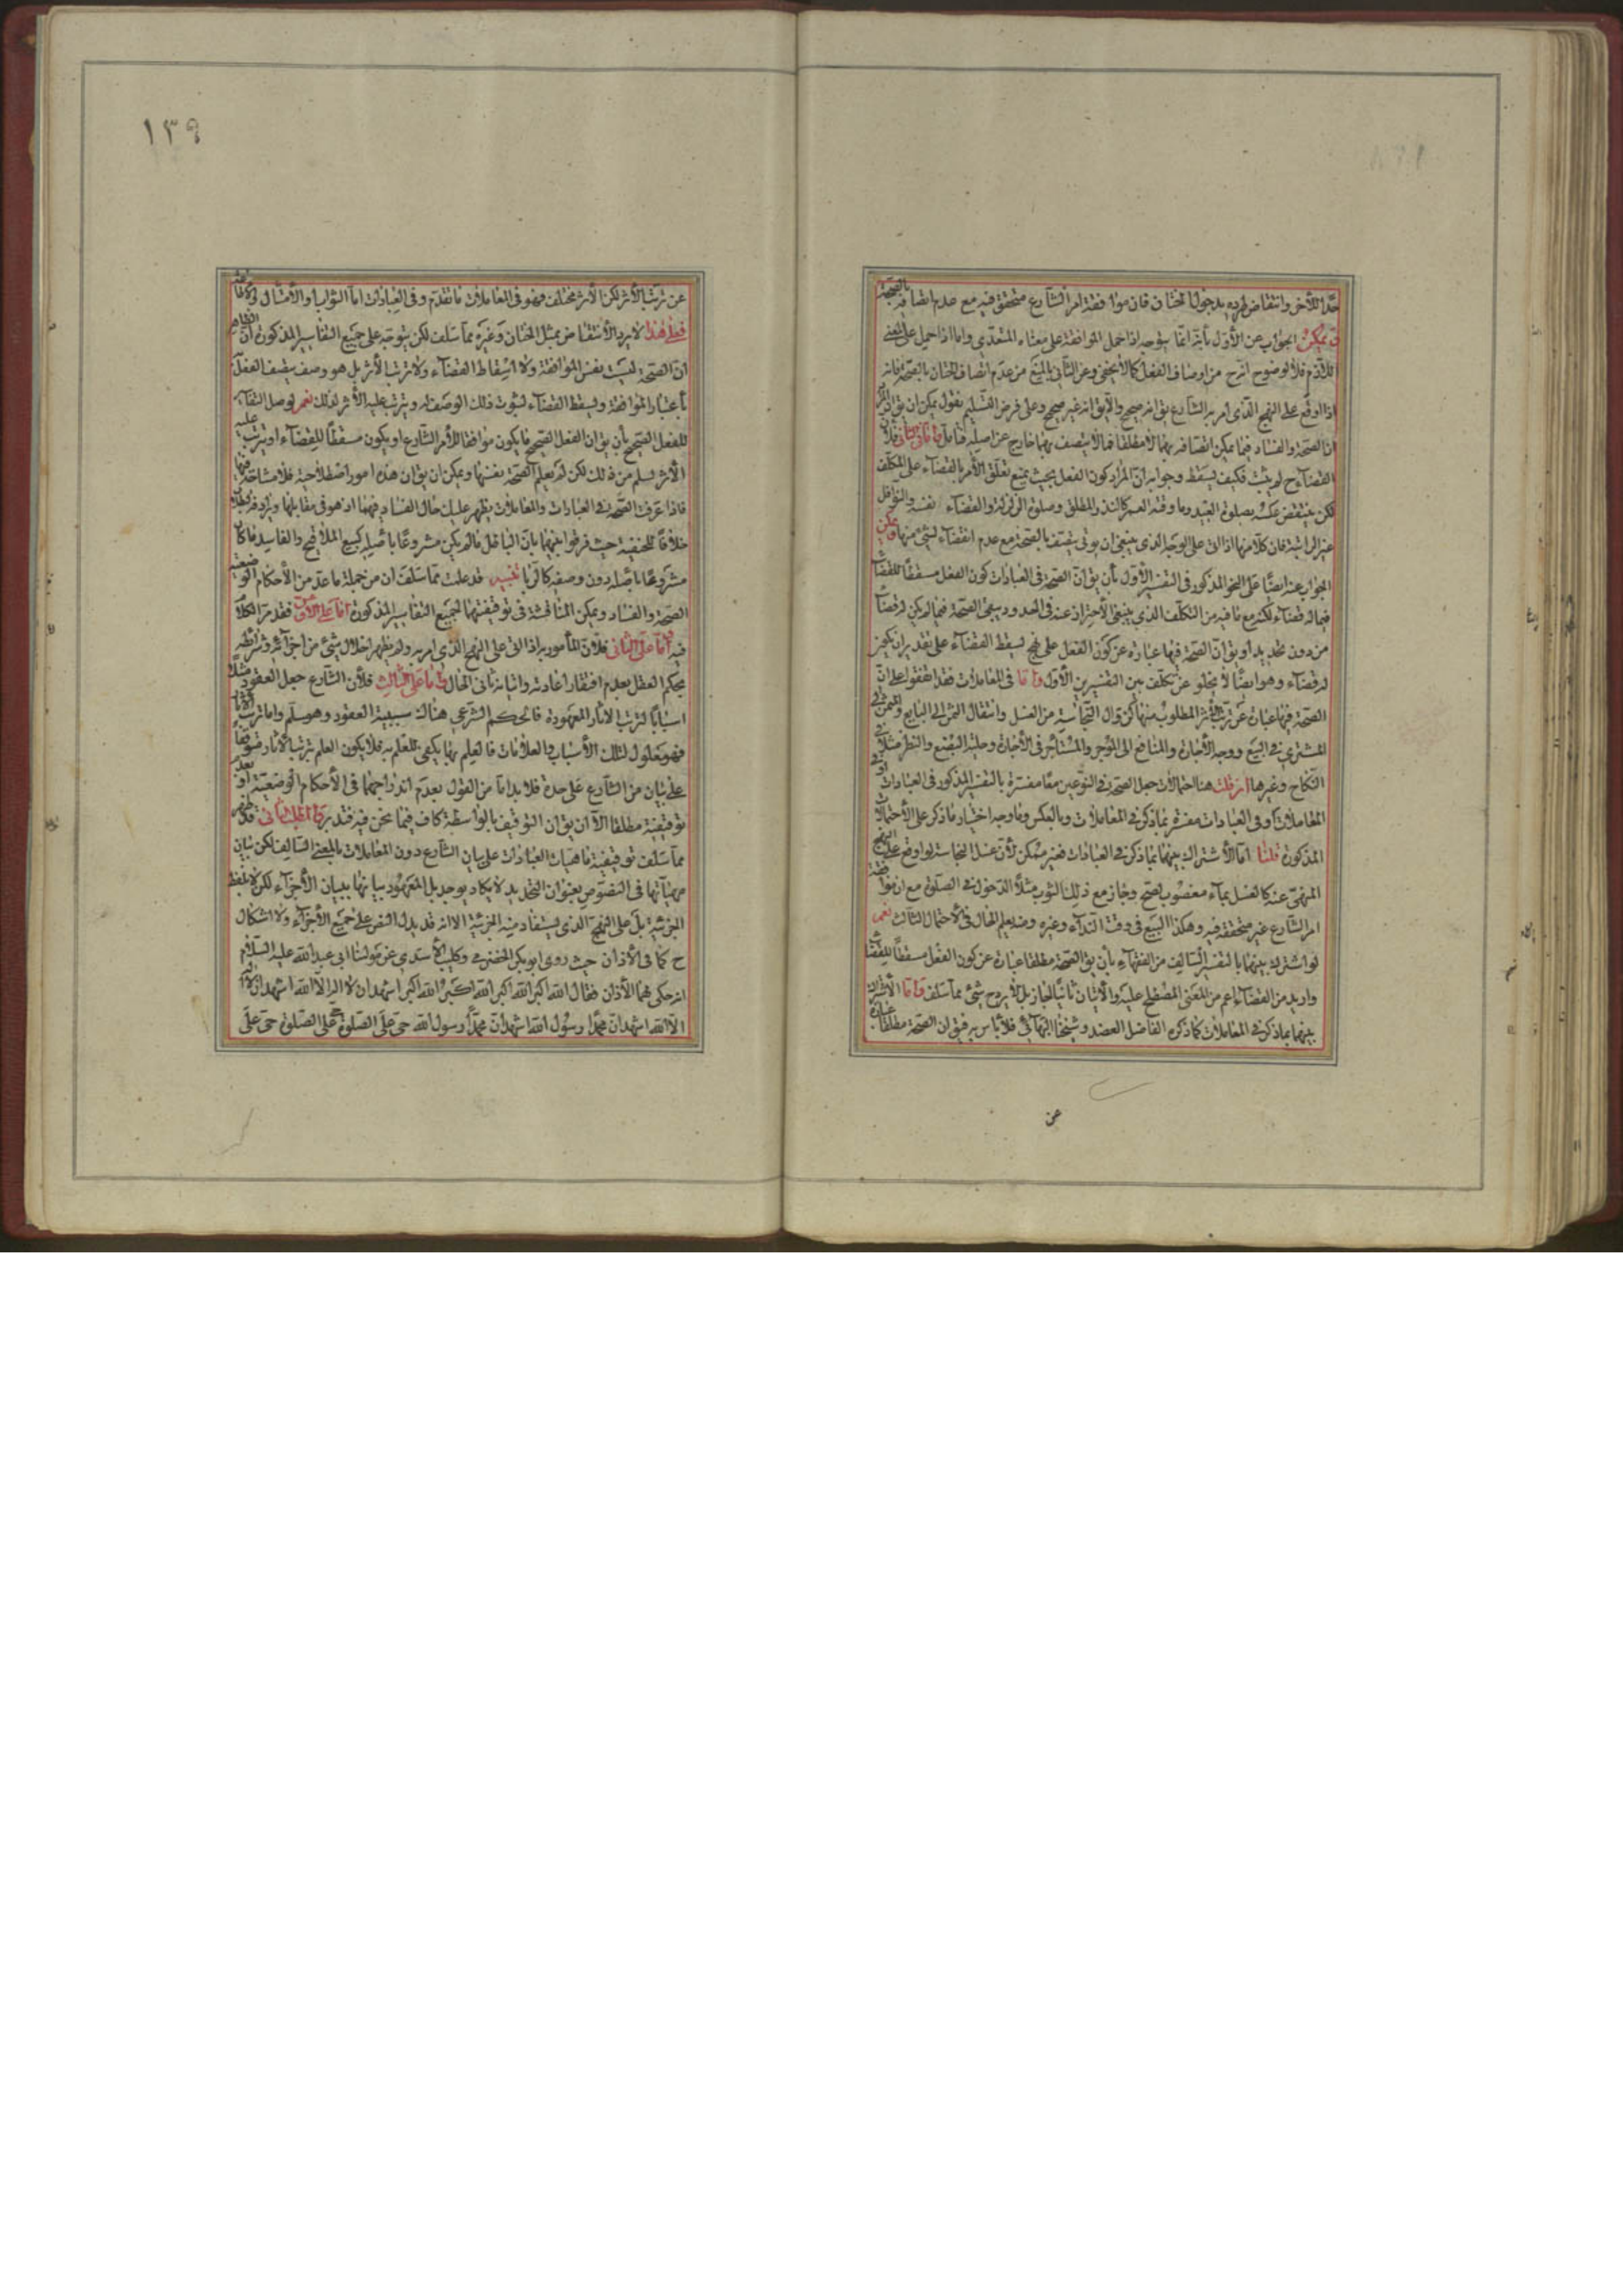 حدّا للآخر وانتقاض طرده بدخول الختان فان موافقة امر الشارع متحقق فيه مع عدم اتصافه بالصحة
ويمكن الجواب عن الأول بأنه انما يتوجه اذا حمل الموافقة على معناه المتعدّي واما اذا حمل على المعنى
اللازم فلا لوضوح انه ح من اوصاف الفعل كما لا يخفى وعن الثاني بالمنع من عدم اتصاف الختان بالصحة فانه
اذا اوقع على النهج الذي امر به الشارع يق انه صحيح والا يق انه غير صحيح وعلى فرض التسليم نقول يمكن ان يق ان
ان الصحة والفساد فيما يمكن اتصافه بهما لا مطلقا فما لا يتصف بهما خارج عن اصله فتأمل واما في الثاني فلأن
القضاء ح لم يثبت فكيف يسقط وجوابه ان المراد كون الفعل بحيث يمنع تعلق الأمر بالقضاء على المكلف
لكن ينتقض عكسه بصلوة العيد وما وقته العمر كالنذر المطلق وصلوة الزلزلة والقضاء نفسه والنوافل
غير الراتبة فان كلا منها اذا اتى على الوجه الذي ينبغي ان يؤتى يتصف بالصحة مع عدم القضاء لشيء منها ويمكن
الجواب عنه ايضا على النحو المذكور في التفسير الأول بأن يق ان الصحة في العبادات كون الفعل مسقطا للقضاء
فيما له قضاء لكنه مع ما فيه من التكلف الذي ينبغي الاحتراز عنه في الحدود يبقى الصحة فيما لم يكن له قضاء
من دون تحديد او يق ان الصحة فيها عبارة عن كون الفعل على نهج يسقط القضاء على تقدير ان يكون
له قضاء وهو ايضا لا يخلو عن تكلف بين التفسيرين الأول واما في المعاملات فقد اتفقوا على ان
الصحة فيها عبارة عن ترتب الأثر المطلوب منها كزوال النجاسة من الغسل وانتقال الثمن الى البايع والمثمن الى
المشتري في البيع ووجه الأجارة والمنافع الى المؤجر والمستأجر في الأجارة وحلية البضع والنظر مثلا في
النكاح وغيرها ان قلت هنا احتمالات جعل الصحة في النوعين معا مفسرة بالتفسير المذكور في العبادات او في
المعاملات او في العبادات مفسرة بما ذكر في المعاملات وبالعكس وما وجه اختيار ما ذكر على الأحتمالات
المذكورة قلنا اما الأشتراك بينهما بما ذكر في العبادات فغير ممكن لأن غسل النجاسة لو اوقع على النهج
المنهي عنه كالغسل بماء مغصوب لصح وجاز مع ذلك الثوب مثلا الدخول في الصلوة مع ان موافقة
امر الشارع غير متحققة فيه وهكذا البيع في وقت النداء وغيره ومنه يعلم الحال في الاحتمال الثالث نعم
لو اشترك بينهما بالتفسير السالف من الفقهاء بأن يق الصحة مطلقا عبارة عن كون الفعل مسقطا للقضاء
واريد من القضاء اعم من المعنى المصطلح عليه والأتيان ثانيا لجاز بل لا يرد ح شيء مما سلف واما الأشتراك
بينهما بما ذكر في المعاملات كما ذكره الفاضل العضد وشيخنا البهائي فلا بأس به فيق ان الصحة مطلقا عبارة
عن
١٣٩
عن ترتب الأثر لكن الأثر مختلف فهو في المعاملات ما تقدم وفي العبادات اما الثواب او الأمتثال
فعلى هذا لا يرد الأنتقاض بمثل الختان وغيره مما سلف لكن يتوجه على جميع التفاسير المذكورة ان الظاهر
ان الصحة ليست نفس الموافقة ولا اسقاط القضاء ولا ترتب الأثر بل هو وصف يتصف الفعل
بأعتبار الموافقة ويسقط القضاء لثبوت ذلك الوصف له ويترتب عليه الأثر لذلك نعم لو جعل التفاسير
للفعل الصحيح بأن يق ان الفعل الصحيح ما يكون موافقا لأمر الشارع او يكون مسقطا للقضاء او يترتب عليه
الأثر لسلم من ذلك لكن لم يعلم الصحة نفسها ويمكن ان يق ان هذه امور اصطلاحية فلا مشاحة فيها
فاذا عرفت الصحة في العبادات والمعاملات يظهر عليك حال الفساد فيهما اذ هو في مقابلها ويرادفه البطلان
خلافا للحنفية حيث فرقوا بينهما بأن الباطل ما لم يكن مشروعا باصله كبيع الملاقيح والفاسد ما كان
مشروعا باصله دون وصفه كالربا تنبيه قد علمت مما سلف ان من جملة ما عد من الأحكام الوضعية
الصحة والفساد ويمكن المناقشة في توقيفيتهما لجميع التفاسير المذكورة اما على الأول فقد مر الكلام
فيه واما على الثاني فلأن المأمور به اذا اتى على النهج الذي امر به ولم يظهر اخلال شيء من اجزائه وشرائطه
يحكم العقل بعدم افتقار اعادته واتيانه ثاني الحال واما على الثالث فلأن الشارع جعل العقود مثلا
اسبابا لترتب الآثار المعهودة فالحكم الشرعي هناك سببية العقود وهو مسلم واما ترتب الآثار
فهو معلول لتلك الأسباب والعلامات فالعلم بها يكفي للعلم به فلا يكون العلم بترتب الآثار متوقفا
على بيان من الشارع على حدة فلا بد اما من القول بعدم اندراجهما في الأحكام الوضعية او بعدم
توقيفية مطلقا الا ان يق ان التوقيف بالواسطة كاف فيما نحن فيه فتدبر واما المطلب الثاني فقد ظهر
مما سلف توقيفية ماهيات العبادات على بيان الشارع دون المعاملات بالمعنى السالف لكن بيان
مهياتها في النصوص بعنوان التحديد لا يكاد يوجد بل المعهود بيانها ببيان الأجزاء لكن لا بلفظ
الجزئية بل على النهج الذي يستفاد منه الجزئية الا انه قد يدل النص على جميع الأجزاء ولا اشكال
ح كما في الأذان حيث روى ابو بكر الحضرمي وكليب الأسدي عن مولينا ابي عبد الله عليه السلام
انه حكى لهما الأذان فقال الله اكبر الله اكبر الله اكبر الله اكبر اشهد ان لا اله الا الله اشهد ان لا اله
الا الله اشهد ان محمدا رسول الله اشهد ان محمدا رسول الله حي على الصلوة حي على الصلوة حي على